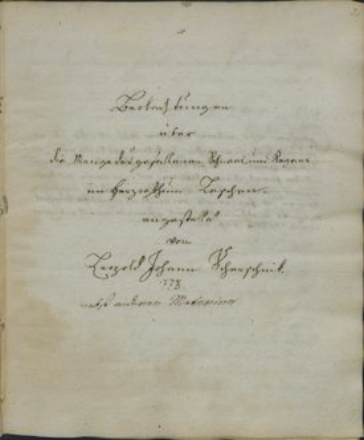 Beobachtungen
über
die Menge des gefallenen Schnees und Regens
im Herzogthum Teschen.
angestellt
vom
Leopold Johann Scherschnik.
177
nebst anderen